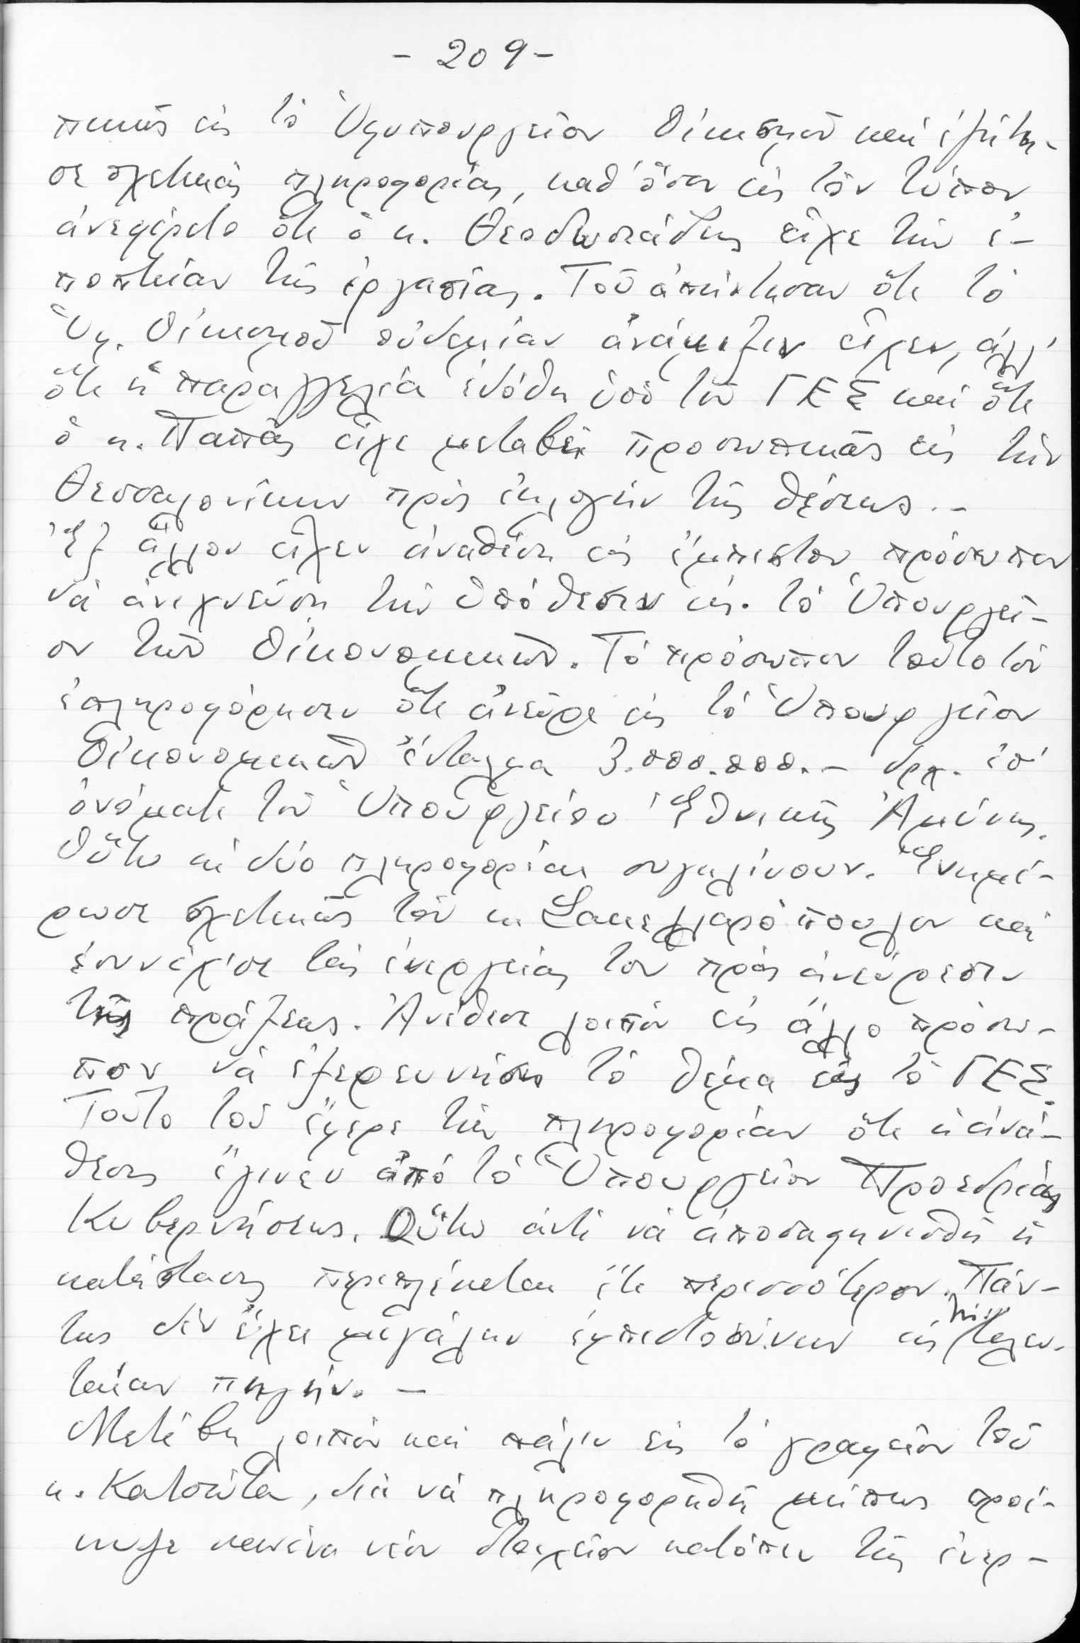 - 209 -
πικῶς εἰς τὸ Ὑφυπουργεῖον Οἰκισμοῦ καὶ ἐζήτη-
σε σχετικὰς πληροφορίας, καθ' ὅσον εἰς τὸν τύπον
ἀνεφέρετο ὅτι ὁ κ. Θεοδωσιάδης εἶχε τὴν ἐ-
ποπτείαν τῆς ἐργασίας. Τοῦ ἀπήντησαν ὅτι τὸ
Ὑφ. Οἰκισμοῦ οὐδεμίαν ἀνάμιξιν εἶχεν, ἀλλ'
ὅτι ἡ παραγγελία ἐδόθη ὑπὸ τοῦ ΓΕΣ καὶ ὅτι
ὁ κ. Παπᾶς εἶχε μεταβεῖ προσωπικῶς εἰς τὴν
Θεσσαλονίκην πρὸς ἐκλογὴν τῆς θέσεως.-
Ἐξ ἄλλου εἶχεν ἀναθέσῃ εἰς ἔμπιστον πρόσωπον
νὰ ἀνιχνεύσῃ τὴν ὑπόθεσιν εἰς τὸ Ὑπουργεῖ-
ον τῶν Οἰκονομικῶν. Τὸ πρόσωπον τοῦτο τὸν
ἐπληροφόρησεν ὅτι ἀνεῦρε εἰς τὸ Ὑπουργεῖον
Οἰκονομικῶν ἔνταλμα 3.000.000.- δρχ. ἐπ'
ὀνόματι τοῦ Ὑπουργείου Ἐθνικῆς Ἀμύνης.
Οὕτω αἱ δύο πληροφορίαι συγκλίνουν. Ἐνημέ-
ρωσε σχετικῶς τὸν κ. Σακελλαρόπουλον καὶ
ἐσυνέχισε τὰς ἐνεργείας του πρὸς ἀνεύρεσιν
τῆς πράξεως. Ἀνέθεσε λοιπὸν εἰς ἄλλο πρόσω-
πον νὰ ἐξερευνήσῃ τὸ θέμα εἰς τὸ ΓΕΣ.
Τοῦτο τοῦ ἔφερε τὴν πληροφορίαν ὅτι ἡ ἀνά-
θεσις ἔγινεν ἀπό τὸ Ὑπουργεῖον Προεδρίας
Κυβερνήσεως. Οὕτω ἀντὶ νὰ ἀποσαφηνισθῇ ἡ
κατάστασις περιπλέκεται ἔτι περισσότερον. Πάν-
τως δὲν ἔχει μεγάλην ἐμπιστοσύνην εἰς τὴν τελευ-
ταίαν πηγήν. -
Μετέβη λοιπὸν καὶ πάλιν εἰς τὸ γραφεῖον τοῦ
κ. Κατσώτα, διὰ νὰ πληροφορηθῇ μήπως προέ-
κυψε κανένα νέον στοιχεῖον κατόπιν τῆς ἐνερ-